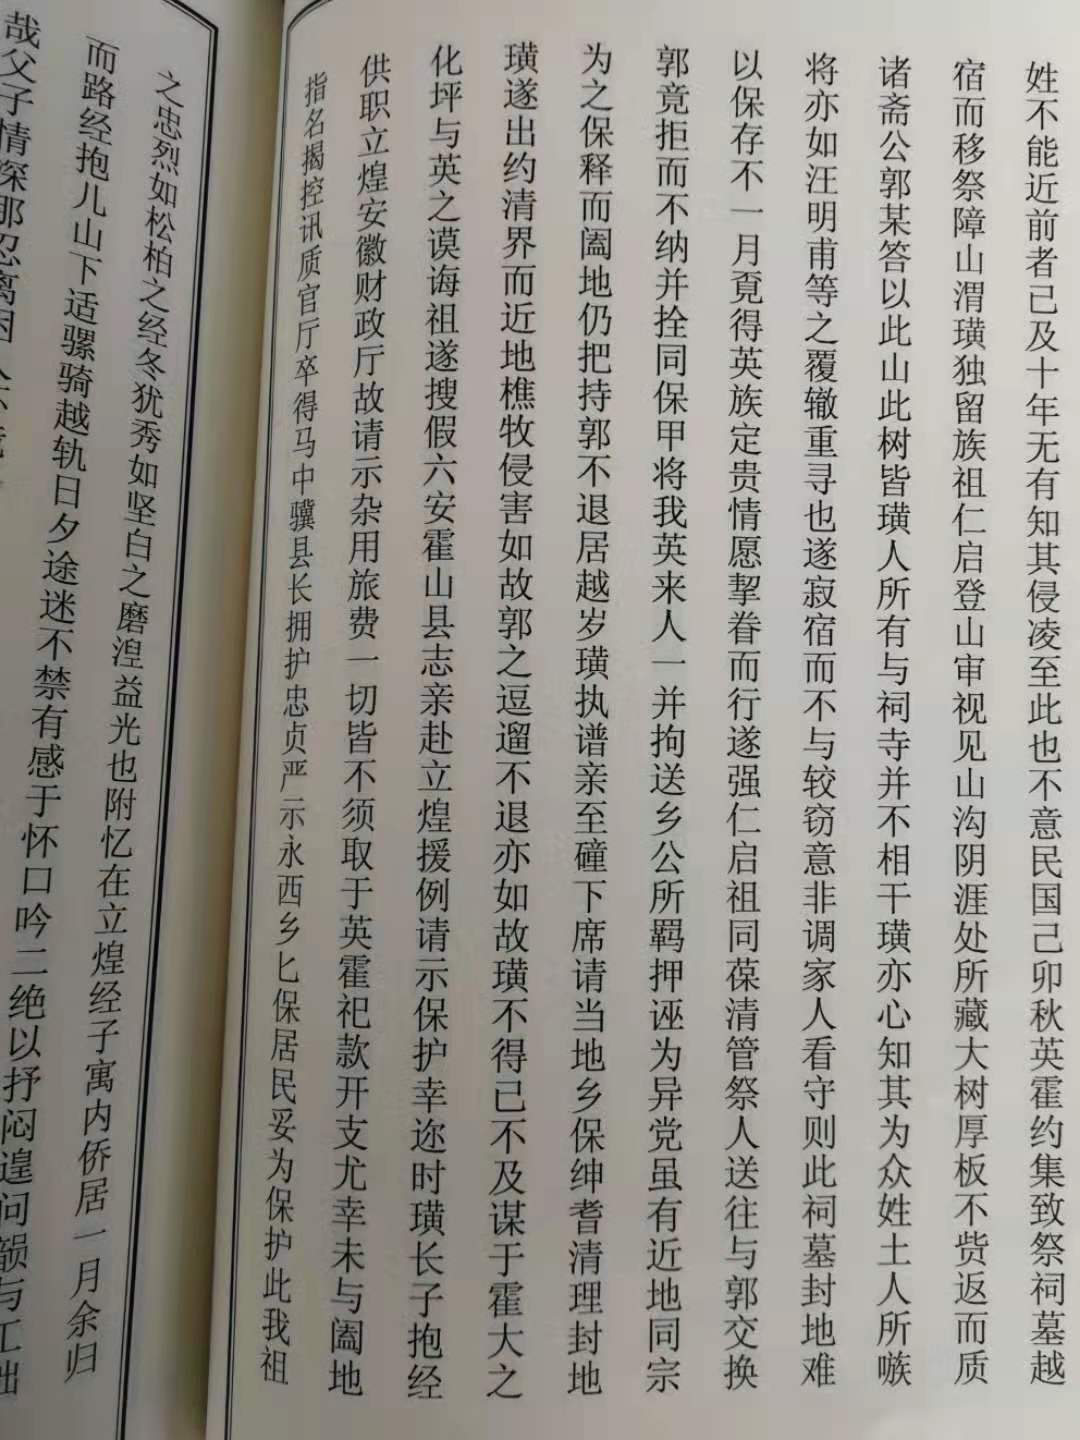 姓不能近前者已及十年无有知其侵凌至此也不意民国己卯秋英霍约集致祭祠墓越
宿而移祭障山渭璜独留族祖仁启登山审视见山沟阴涯处所藏大树厚板不赀返而质
诸斋公郭某答以此山此树皆璜人所有与祠寺并不相干璜亦心知其为众姓土人所嗾
将亦如汪明甫等之覆辙重寻也遂寂宿而不与较窃意非调家人看守则此祠墓封地难
以保存不一月覔得英族定贵情愿挈眷而行遂强仁启祖同葆清管祭人送往与郭交换
郭竟拒而不纳并拴同保甲将我英来人一并拘送乡公所羁押诬为异党虽有近地同宗
为之保释而阖地仍把持郭不退居越岁璜执谱亲至磴下席请当地乡保绅耆清理封地
璜遂出约清界而近地樵牧侵害如故郭之逗遛不退亦如故璜不得已不及谋于霍大之
化坪与英之谟诲祖遂搜假六安霍山县志亲赴立煌援例请示保护幸迩时璜长子抱经
供职立煌安徽财政厅故请示杂用旅费一切皆不须取于英霍祀款开支尤幸未与阖地
指名揭控讯质官厅卒得马中骥县长拥护忠贞严示永西乡匕保居民妥为保护此我祖
之忠烈如松柏之经冬犹秀如坚白之磨湼益光也附忆在立煌经子寓内侨居一月余归
而路经抱儿山下适骡骑越轨日夕途迷不禁有感于怀口吟二绝以抒闷遑问韻与工拙
哉父子情深那忍离因